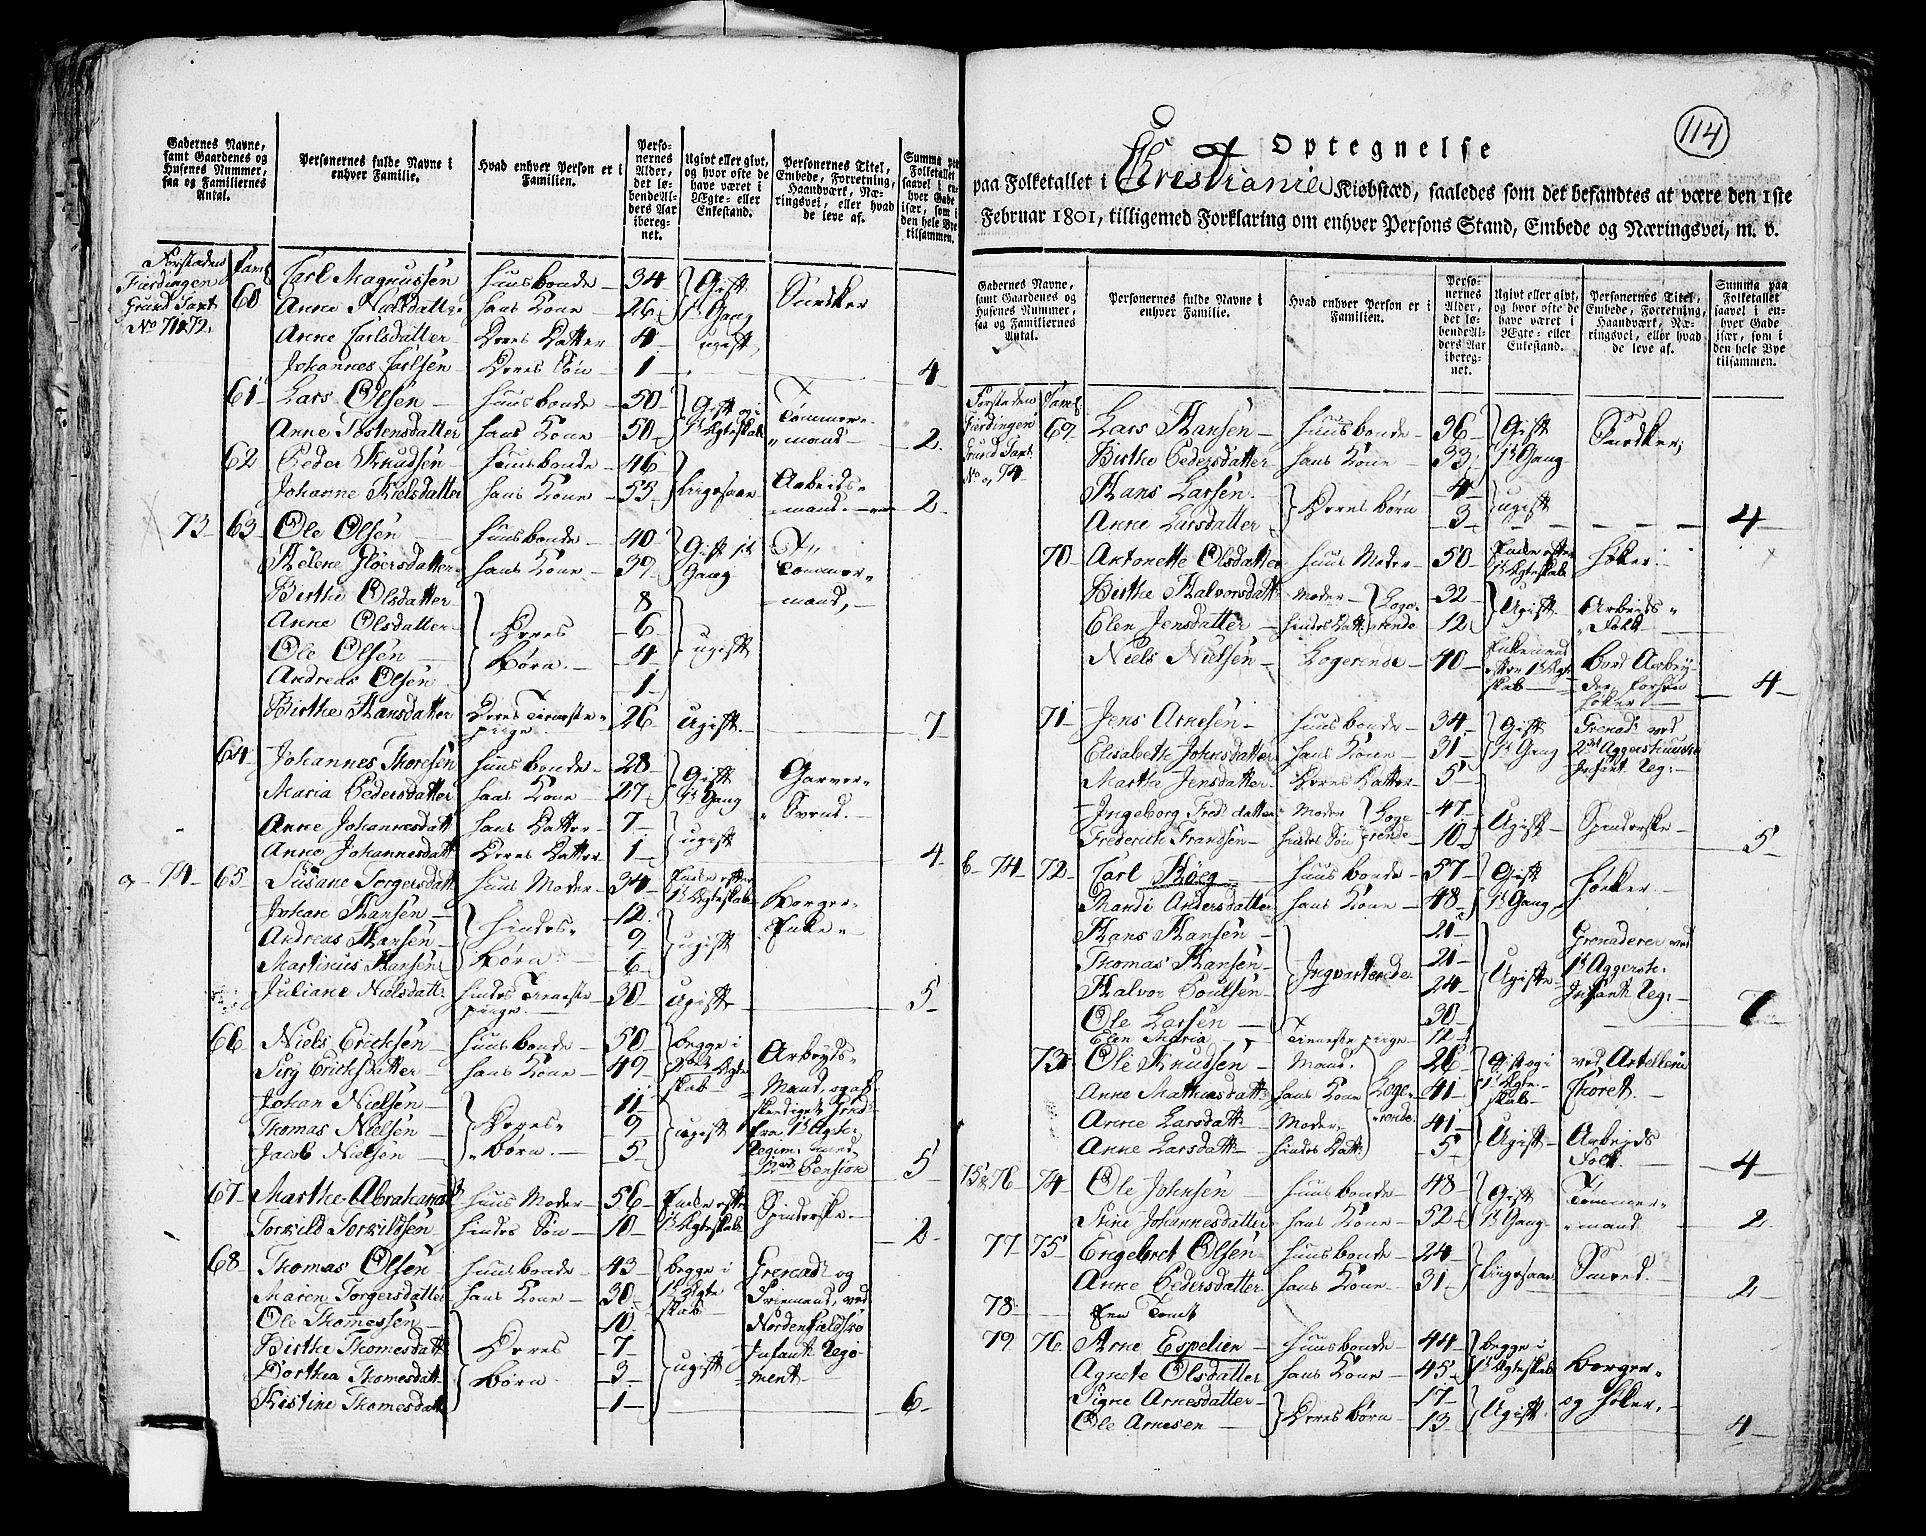 Gadernes Navne, samt Gaardenes og Husenes Nummer, saa og Familiernes Antal.
Personernes fulde Navne i enhver Familie.
Hvad enhver Person er i Familien.
Personernes Alder, det løbende Alders Aar iberegnet.
Ugivt eller givt, og hvor ofte de have været i Ægte- eller Enkestand.
Personernes Titel, Embede, Forretning, Haandværk, Næringsvei, eller hvad de leve af.
Summa paa Folketallet saavel i enhver Gade især, som i den hele Bye tilsammen.
Forstaden Fierdingen Grund Taxt No 71&72.
Faml
60 Carl Magnussen Huusbonde 34 Gift 1ste Gang Snedker
Anne Nielsdatter hans Kone 26
Anne Carlsdatter Deres Datter 4 ugift
Johannes Carlsen Deres Søn 1 4
61 Lars Olsen Huusbonde 50 Gift og i 1ste Ægteskab Tømmermand
Anne Tostensdatter hans Kone 50 2
62 Peder Knudsen Huusbonde 46 Ligesaa Arbeidsmand
Johanne Nielsdatter hans Kone 55 2
73 63 Ole Olsen Huusbonde 40 Gift 1ste Gang Tømmermand
Helene hans Kone 39
Birthe Olsdatter 8
Anne Olsdatter Deres 6 ugift
Ole Olsen Børn 4
Andreas Olsen 1
Birthe Hansdatter Deres Tieneste pige 26 Ugift 7
64 Johannes Thoresen Huusbonde 28 Gift 1ste Gang Garver Svend
Maria Pedersdatter hans Kone 27
Anne Johannesdatt hans Datter 7 ugift
Anne Johannesdatt Deres Datter 1 4
a 74 65 Susane Torgersdatt Huus Moder 34 Enke efter 1ste Ægteskab Borger Enke
Johan Hansen Hindes 12
Andreas Hansen Børn 9 ugift
Martinus Hansen 6
Juliane Nielsdatt: hindes Tieneste pige 30 Ugift 5
66 Niels Ericksen Huusbonde 50 begge i 2det Ægteskab Arbeyds-
Siry Ericksdatter hans Kone 49 Mand, og
Johan Nielsen 11
Thomas Nielsen Deres 9 ugift
Jacob Nielsen Børn 5 Pension 5
67 Marthe Abrahamsd Huus Moder 56 Enke efter 1ste Ægteskab Spinderske
Torkild Torkildsen hindes Søn 10 2
68 Thomas Olsen Huusbonde 43 begge i 1ste Ægteskab Grenad: og
Maren Torgersdatter hans Kone 30 Friemand, ved
Ole Thomessen 10 Nordenfieldske
Birthe Thomesdatt Deres 7 ugift Infant: Regi-
Dorthea Thomesdatt Børn 3 ment
Kistine Thomesdatt 1 6
114
Optegnelse
paa Folketallet i Christiania Kiøbstæd, saaledes som det befandtes at være den 1ste
Februar 1801, tilligemed Forklaring om enhver Persons Stand, Embede og Næringsvei, m. v.
Gadernes Navne, samt Gaardenes og Husenes Nummer, saa og Familiernes Antal.
Personernes fulde Navne i enhver Familie.
Hvad enhver Person er i Familien.
Personernes Alder, det løbende Alders Aar iberegnet.
Ugivt eller givt, og hvor ofte de have været i Ægte- eller Enkestand.
Personernes Titel, Embede, Forretning, Haandværk, Næringsvei, eller hvad de leve af.
Summa paa Folketallet saavel i enhver Gade især, som i den hele Bye tilsammen.
Forstaden Fierdingen Grund Taxt No a 74
Faml
69 Lars Hansen Huusbonde 36 Gift 1ste Gang Snedker
Birthe Pedersdatter hans Kone 33
Hans Larsen Deres Børn 4 ugift
Anne Larsdatter 3 4
70 Antonette Olsdatter Huus Moder 50 Enke efter 1ste Ægteskab Høker
Birthe Halvorsdatt Moder Loge- 32 Ugift Arbeids-
Elen Jensdatter hindes Datt rende 12 Folk
Niels Nielsen Logerende 40 Enkemand efter 1ste Ægteskab 4
71 Jens Arnesen Huusbonde 34 Gift 1ste Gang Grenad: ved
Elisabeth Johnsdatter hans Kone 31 2det Aggershuuske
Martha Jensdatter Deres Datter 5 Infant: Reg:
Ingeborg Fredsdatter Moder Loge 47 Ugift Spinderske
Frederich Frandsen hindes Søn rende 10 5
b 74 72 Carl Høeg Huusbonde 57 Gift 1ste Gang Høker
Randi Andersdatter hans Kone 48
Hans Hansen 21 Grenaderer ved
Thomas Hansen Inqvarterede 21 Ugifte 1ste Aggersh:
Halvor Poulsen 24 Infant: Reg:
Ole Larsen 30 7
Elen Maria Tieneste pige 12
73 Ole Knudsen Mand 26 Gift og i 1ste Ægteskab ved Artelleriet
Anne Mathiasdatt hans Kone Loge- 41
Anne Larsdatt Moder rende 41 Ugift Arbeids
Anne Larsdatt hindes Datt 5 Folk 4
75&76 74 Ole Johnsen Huusbonde 48 Gift 1ste Gang Tømmermand
Stine Johannesdatter hans Kone 52 2
77 75 Engebret Olsen Huusbonde 24 Ligesaa Smed
Anne Pedersdatter hans Kone 31 2
78 Een Tomt
79 76 Arne Espelien Huusbonde 44 begge i 1ste Ægteskab Borger
Agnete Olsdatter hans Kone 45
Signe Arnesdatter Deres Børn 17 Ugift og Høker
Ole Arnesen 13 4